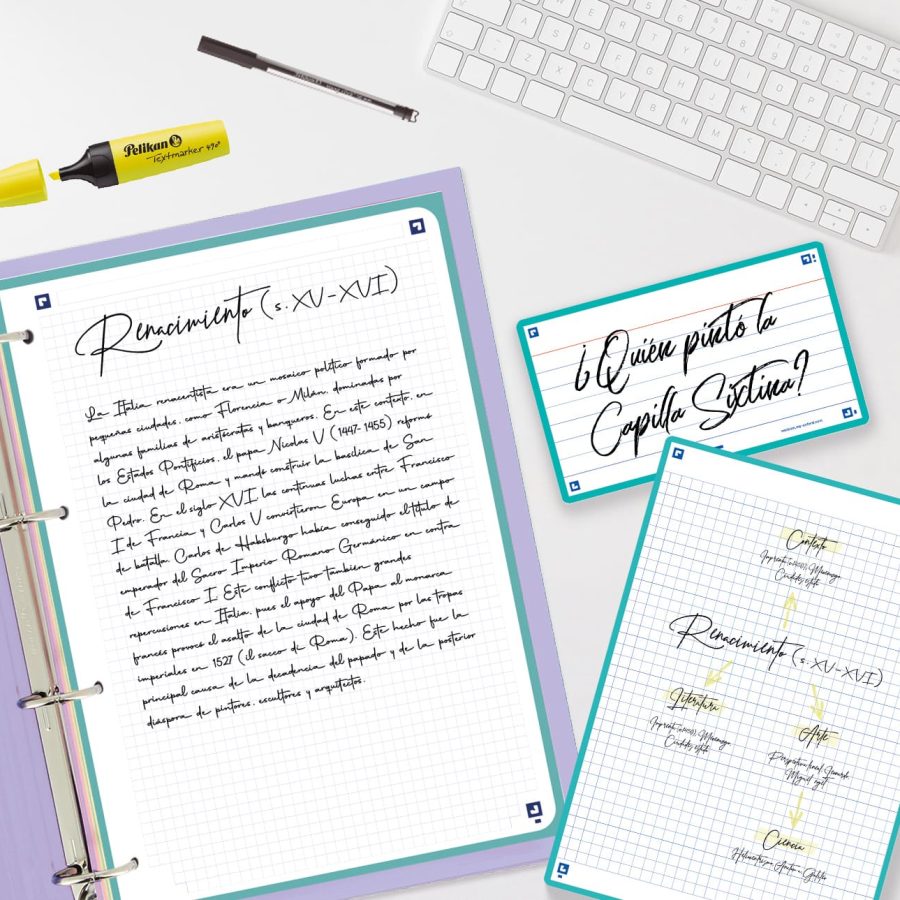 Pelikan
Textmarker 490
Renacimiento (s. XV-XVI)
La Italia renacentista era un mosaico político formado por
pequeñas ciudades, como Florencia o Milán, dominadas por
algunas familias de aristócratas y banqueros. En este contexto, en
los Estados Pontificios, el papa Nicolas V (1447-1455) reformó
la ciudad de Roma y mandó construir la basílica de San
Pedro. En el siglo XVI, las continuas luchas entre Francisco
I de Francia y Carlos V convirtieron Europa en un campo
de batalla. Carlos de Habsburgo había conseguido el título de
emperador del Sacro Imperio Romano Germánico en contra
de Francisco I. Este conflicto tuvo también grandes
repercusiones en Italia, pues el apoyo del Papa al monarca
francés provocó el asalto de la ciudad de Roma por las tropas
imperiales en 1527 (il sacco di Roma). Este hecho fue la
principal causa de la decadencia del papado y de la posterior
diáspora de pintores, escultores y arquitectos.
¿Quién pintó la
Capilla Sixtina?
Contexto
Renacimiento (s. XV-XVI)
Literatura
Arte
Ciencia